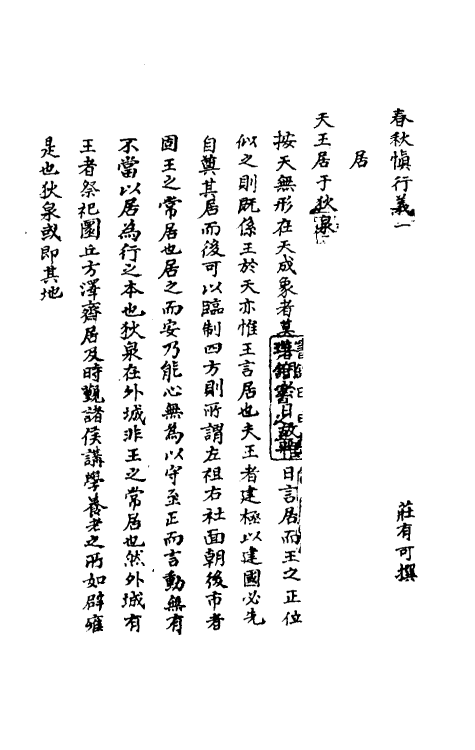 春秋愼行義一
莊有可撰
居
天王居于狄泉
按天無形在天成象者莫日故無日言居而王之正位
似之則旣係王於天亦惟王言居也夫王者建極以建國必先
自奠其居而後可以臨制四方則所謂左祖右社面朝後市者
固王之常居也居之而安乃能心無為以守至正而言動無有
不當以居為行之本也狄泉在外城非王之常居也然外城有
王者祭祀圜丘方澤齋居及時覲諸侯講學養老之所如辟雍
是也狄泉或卽其地